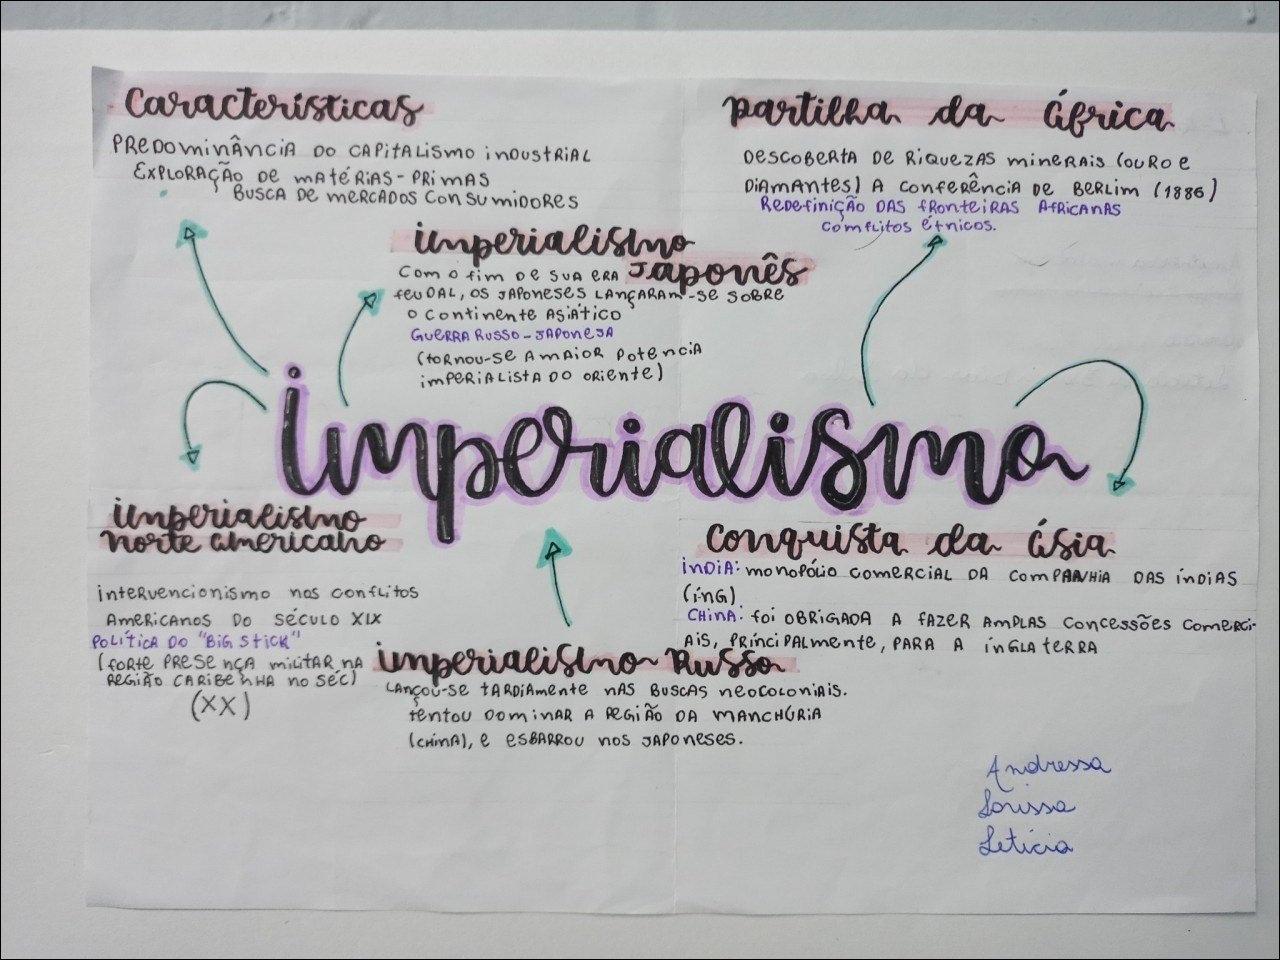 Características
PREDOMINÂNCIA DO CAPITALISMO INDUSTRIAL
EXPLORAÇÃO DE MATÉRIAS-PRIMAS
BUSCA DE MERCADOS CONSUMIDORES
Partilha da África
DESCOBERTA DE RIQUEZAS MINERAIS (OURO E
DIAMANTES) A CONFERÊNCIA DE BERLIM (1886)
REDEFINIÇÃO DAS FRONTEIRAS AFRICANAS
CONFLITOS ÉTNICOS.
imperialismo
JAPONÊS
COM O FIM DE SUA ERA
FEUDAL, OS JAPONESES LANÇARAM-SE SOBRE
O CONTINENTE ASIÁTICO
GUERRA RUSSO-JAPONESA
(TORNOU-SE A MAIOR POTENCIA
IMPERIALISTA DO ORIENTE)
imperialismo
imperialismo
norte americano
INTERVENCIONISMO NOS CONFLITOS
AMERICANOS DO SÉCULO XIX
POLÍTICA DO "BIG STICK"
(FORTE PRESENÇA MILITAR NA
REGIÃO CARIBENHA NO SÉC)
(XX)
Conquista da Ásia
ÍNDIA: MONOPÓLIO COMERCIAL DA COMPANHIA DAS ÍNDIAS
(ING)
CHINA: FOI OBRIGADA A FAZER AMPLAS CONCESSÕES COMERCI-
AIS, PRINCIPALMENTE, PARA A INGLATERRA
imperialismo Russo
LANÇOU-SE TARDIAMENTE NAS BUSCAS NEOCOLONIAIS.
TENTOU DOMINAR A REGIÃO DA MANCHÚRIA
(CHINA), E ESBARROU NOS JAPONESES.
Andressa
Larissa
Letícia